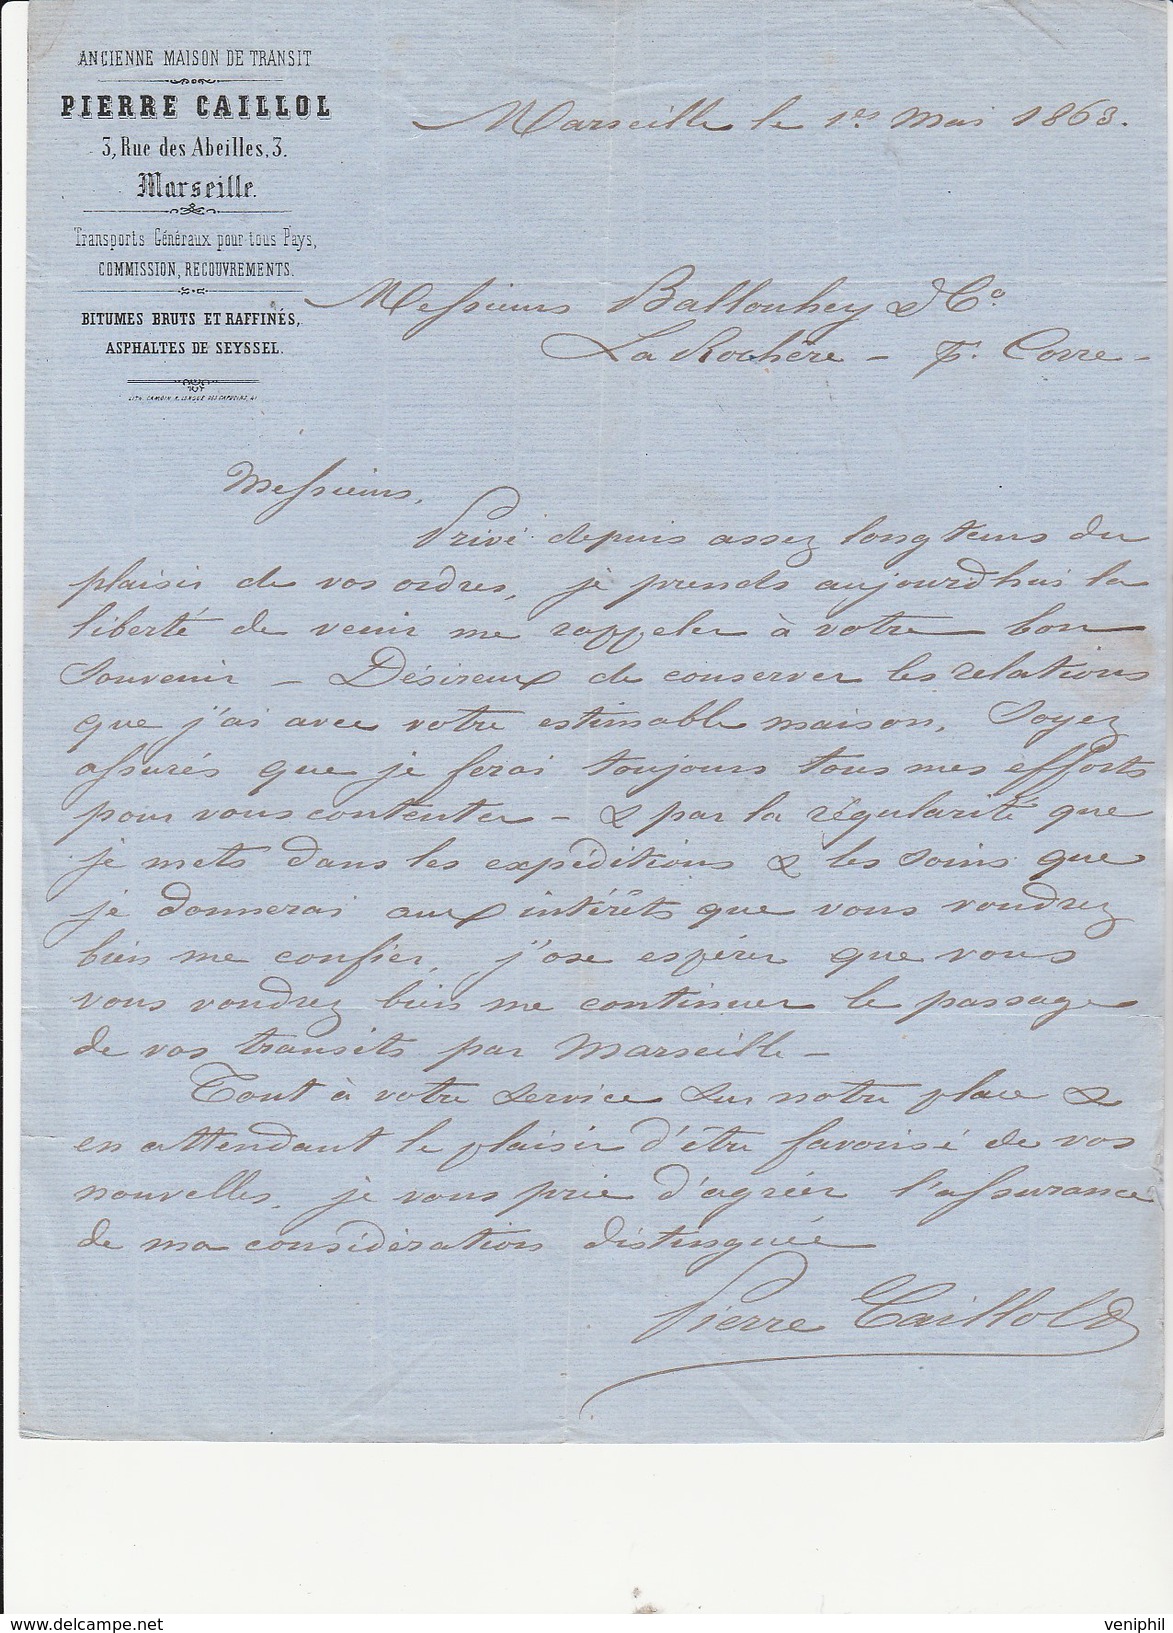 ANCIENNE MAISON DE TRANSIT
PIERRE CAILLOL
3, Rue des Abeilles, 3.
Marseille.
Transports Généraux pour tous Pays,
COMMISSION, RECOUVREMENTS.
BITUMES BRUTS ET RAFFINÉS,
ASPHALTES DE SEYSSEL.
Marseille le 1er Mai 1863.
Messieurs Ballouhey & Co
La Rochère - p. Corre -
Messieurs,
Privé depuis assez longtems du
plaisir de vos ordres, je prends aujourd'hui la
liberté de venir me rappeler à votre bon
Souvenir - Désireux de conserver les relations
que j'ai avec votre estimable maison, Soyez
assurés que je ferai toujours tous mes efforts
pour vous contenter - & par la régularité que
je mets dans les expéditions & les soins que
je donnerai aux intérêts que vous voudrez
bien me confier, j'ose espérer que vous
vous voudrez bien me continuer le passage
de vos transits par Marseille -
Tout à votre service sur notre place &
en attendant le plaisir d'être favorisé de vos
nouvelles, je vous prie d'agréer l'assurance
de ma considération distinguée
Pierre Caillol
veniphil
www.delcampe.net